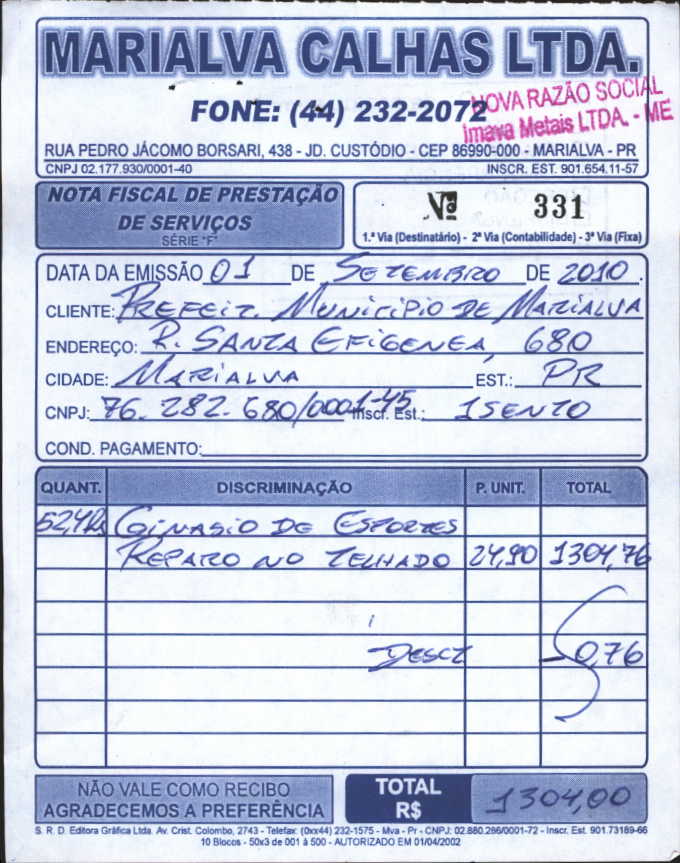 MARIALVA CALHAS LTDA.
FONE: (44) 232-2072
NOVA RAZÃO SOCIAL
Imava Metais LTDA. - ME
RUA PEDRO JÁCOMO BORSARI, 438 - JD. CUSTÓDIO - CEP 86990-000 - MARIALVA - PR
CNPJ 02.177.930/0001-40 INSCR. EST. 901.654.11-57
NOTA FISCAL DE PRESTAÇÃO
DE SERVIÇOS
SÉRIE "F"
Nº 331
1.ª Via (Destinatário) - 2ª Via (Contabilidade) - 3ª Via (Fixa)
DATA DA EMISSÃO 01 DE SETEMBRO DE 2010.
CLIENTE: PREFEIT. MUNICIPIO DE MARIALVA
ENDEREÇO: R. SANTA EFIGENEA, 680
CIDADE: MARIALVA EST.: PR
CNPJ: 76.282.680/0001-45 Inscr. Est.: ISENTO
COND. PAGAMENTO:
QUANT. DISCRIMINAÇÃO P. UNIT. TOTAL
GINASIO DE ESPORTES
REPARO NO TELHADO 24,90 1304,76
DESCT 0,76
NÃO VALE COMO RECIBO
AGRADECEMOS A PREFERÊNCIA
TOTAL
R$ 1304,00
S. R. D. Editora Gráfica Ltda. Av. Crist. Colombo, 2743 - Telefax: (0xx44) 232-1575 - Mva - Pr - CNPJ: 02.880.286/0001-72 - Inscr. Est. 901.73189-66
10 Blocos - 50x3 de 001 à 500 - AUTORIZADO EM 01/04/2002